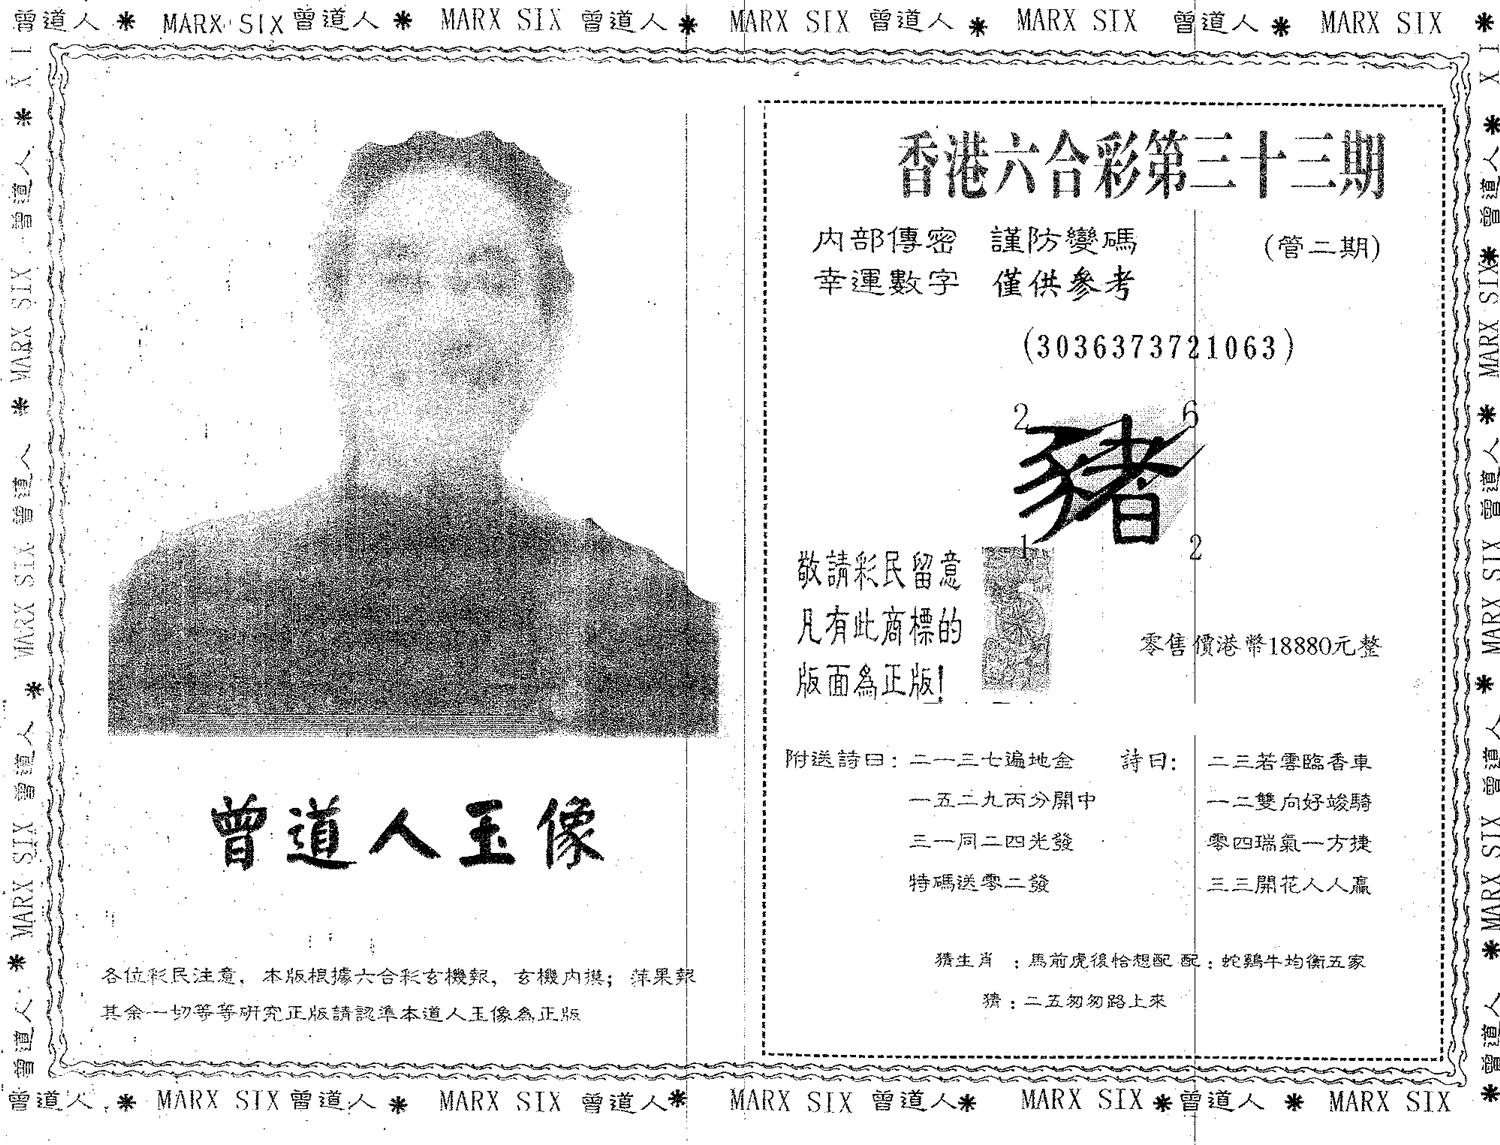 曾道人 * MARX SIX 曾道人 * MARX SIX 曾道人 * MARX SIX 曾道人 * MARX SIX 曾道人 * MARX SIX *
曾道人玉像
各位彩民注意，本版根據六合彩玄機報，玄機內摸；萍果報
其余一切等等研究正版請認準本道人玉像為正版
香港六合彩第三十三期
內部傳密 謹防變碼 (管二期)
幸運數字 僅供參考
(3036373721063)
2 6
豬
1 2
敬請彩民留意
凡有此商標的
版面為正版!
零售價港幣18880元整
附送詩曰：二一三七遍地金
一五二九丙分開中
三一同二四光發
特碼送零二發
詩曰：二三若雲臨香車
一二雙向好竣騎
零四瑞氣一方捷
三三開花人人贏
猜生肖：馬前虎後恰想配 配：蛇雞牛均衡五家
猜：二五匆匆路上來
X I * 曾道人 MARX SIX * 曾道人 MARX SIX * 曾道人 MARX SIX * 曾道人
X I * 曾道人 * MARX SIX * 曾道人 MARX SIX * 曾道人 MARX SIX * 曾道人 *
曾道人 * MARX SIX 曾道人 * MARX SIX 曾道人 * MARX SIX 曾道人 * MARX SIX * 曾道人 * MARX SIX